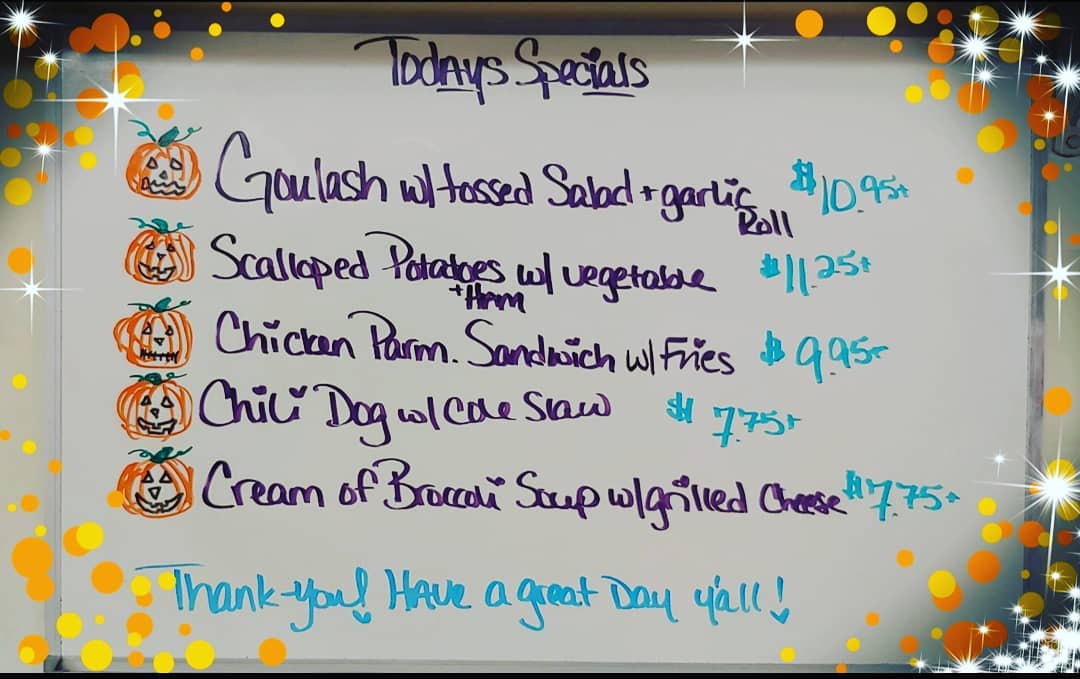 Todays Specials
Goulash w/tossed Salad + garlic Roll $10.95+
Scalloped Potatoes w/ vegetable + Ham $11.25+
Chicken Parm. Sandwich w/Fries $9.95+
Chili Dog w/Cole Slaw $7.75+
Cream of Broccoli Soup w/grilled Cheese $7.75+
Thank-you! Have a great Day y'all!